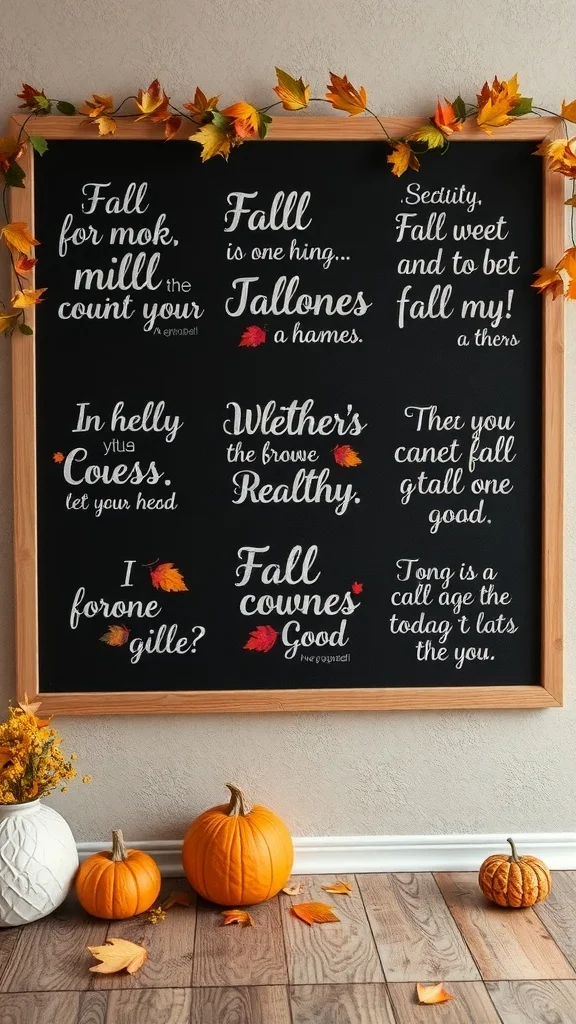 Fall
for mok,
milll the
count your
Falll
is one hing...
Jallones
a hames.
.Sedtity,
Fall weet
and to bet
fall my!
a thers
In helly
ytus
Coress.
let your head
Wlether's
the frowe
Realthy.
Ther you
canet fall
gtall one
good.
I
forone
gille?
Fall
cownes
Good
Tong is a
call age the
today't lats
the you.